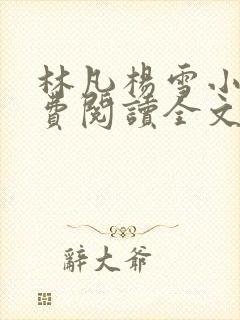 林凡楊雪小
費閱讀全文
辭大爺